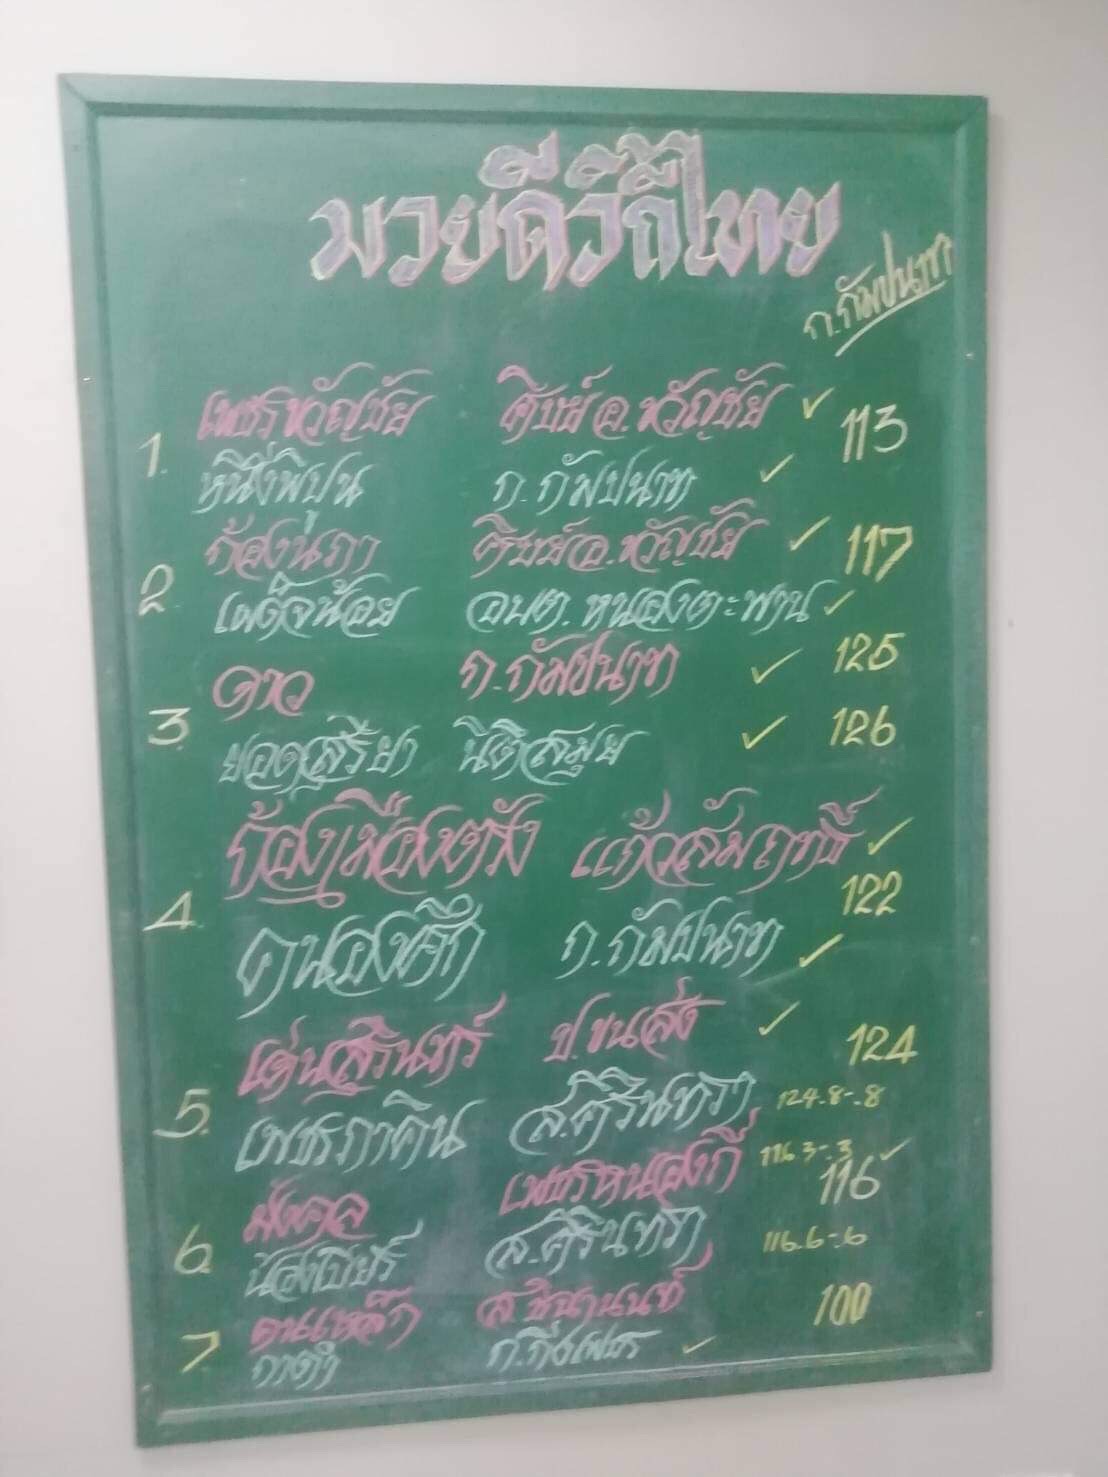 มวยดีวิถีไทย
ก.กัมปนาท
1. เพชรขวัญชัย ศิษย์อ.ขวัญชัย ✓ 113
หนึ่งพิปูน ก.กัมปนาท ✓
2. ก้องนภา ศิษย์อ.ขวัญชัย ✓ 117
เผด็จน้อย อบต.หนองตะพาน ✓
3. ดาว ก.กัมปนาท ✓ 125
ยอดสุริยา นิติสมุย ✓ 126
4. ก้องเมืองตรัง แก้วสัมฤทธิ์ ✓ 122
คนองศึก ก.กัมปนาท ✓
5. เด่นสุรินทร์ ป.ขนส่ง ✓ 124
เพชรภาคิน ส.ศิรินทรา 124.8-.8
6. มังคล เพชรหนองกี่ 116.3-.3 ✓ 116
น้องเบียร์ ส.ศิรินทรา 116.6-.6
7. ส.ชินานนท์ 100
กาดำ ก.กิ่งเพชร ✓